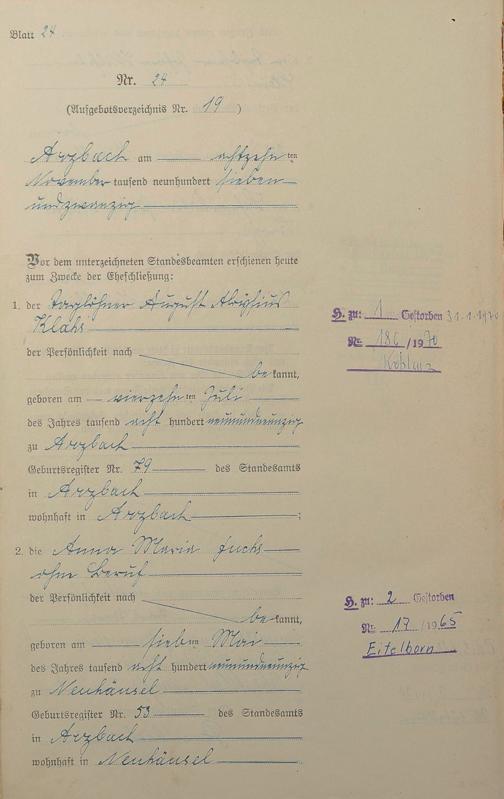 Blatt 24
Nr. 24
(Aufgebotsverzeichnis Nr. 19)
Arzbach am achtzehn ten
November tausend neunhundert sieben
undzwanzig
Vor dem unterzeichneten Standesbeamten erschienen heute
zum Zwecke der Eheschließung:
1. der Taglöhner August Aloysius
der Persönlichkeit nach
be kannt,
geboren am vierzehn ten Juli
des Jahres tausend acht hundert neunundneunzig
zu Arzbach
Geburtsregister Nr. 79 des Standesamts
in Arzbach
wohnhaft in Arzbach ;
2. die Anna Maria Fuchs
ohne Beruf
der Persönlichkeit nach
be kannt,
geboren am sieb ten Mai
des Jahres tausend acht hundert neunundneunzig
zu Neuhäusel
Geburtsregister Nr. 53 des Standesamts
in Arzbach
wohnhaft in Neuhäusel
H. zu: 1 Gestorben 31.1.1970
Nr. 186 /1970
Koblenz
H. zu: 2 Gestorben
Nr. 17 /1965
Eitelborn